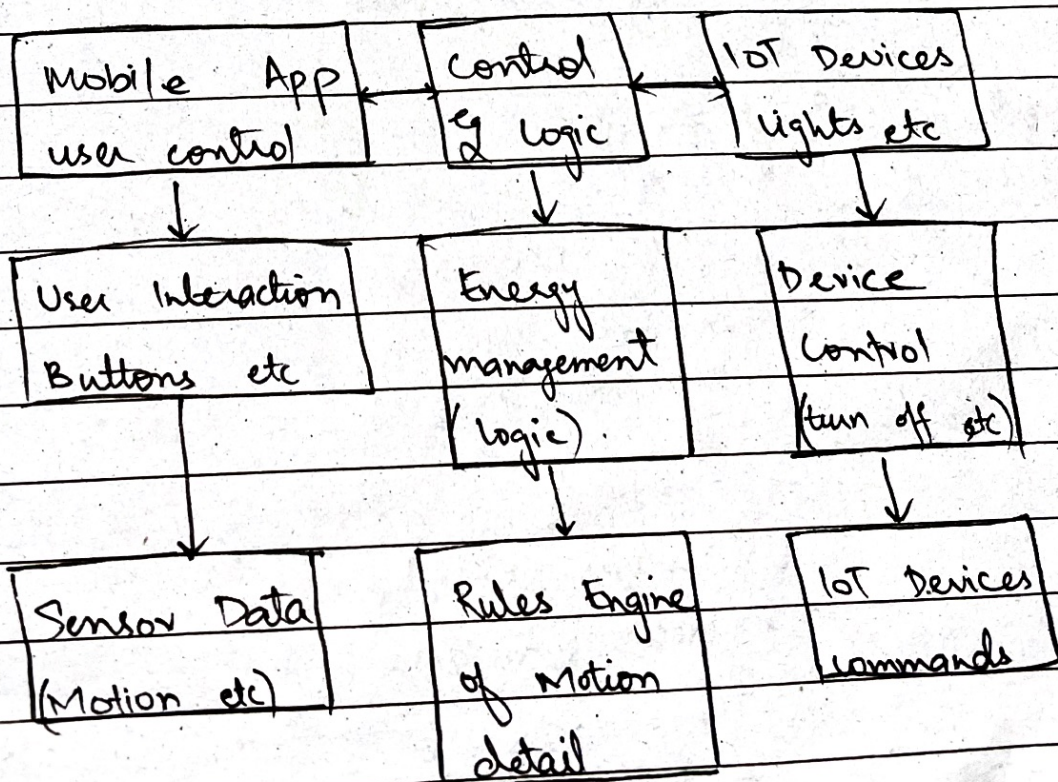 Mobile App
user control
Control
& Logic
IoT Devices
Lights etc
User Interaction
Buttons etc
Energy
management
(Logic).
Device
Control
(turn off etc)
Sensor Data
(Motion etc)
Rules Engine
of Motion
detail
IoT Devices
commands